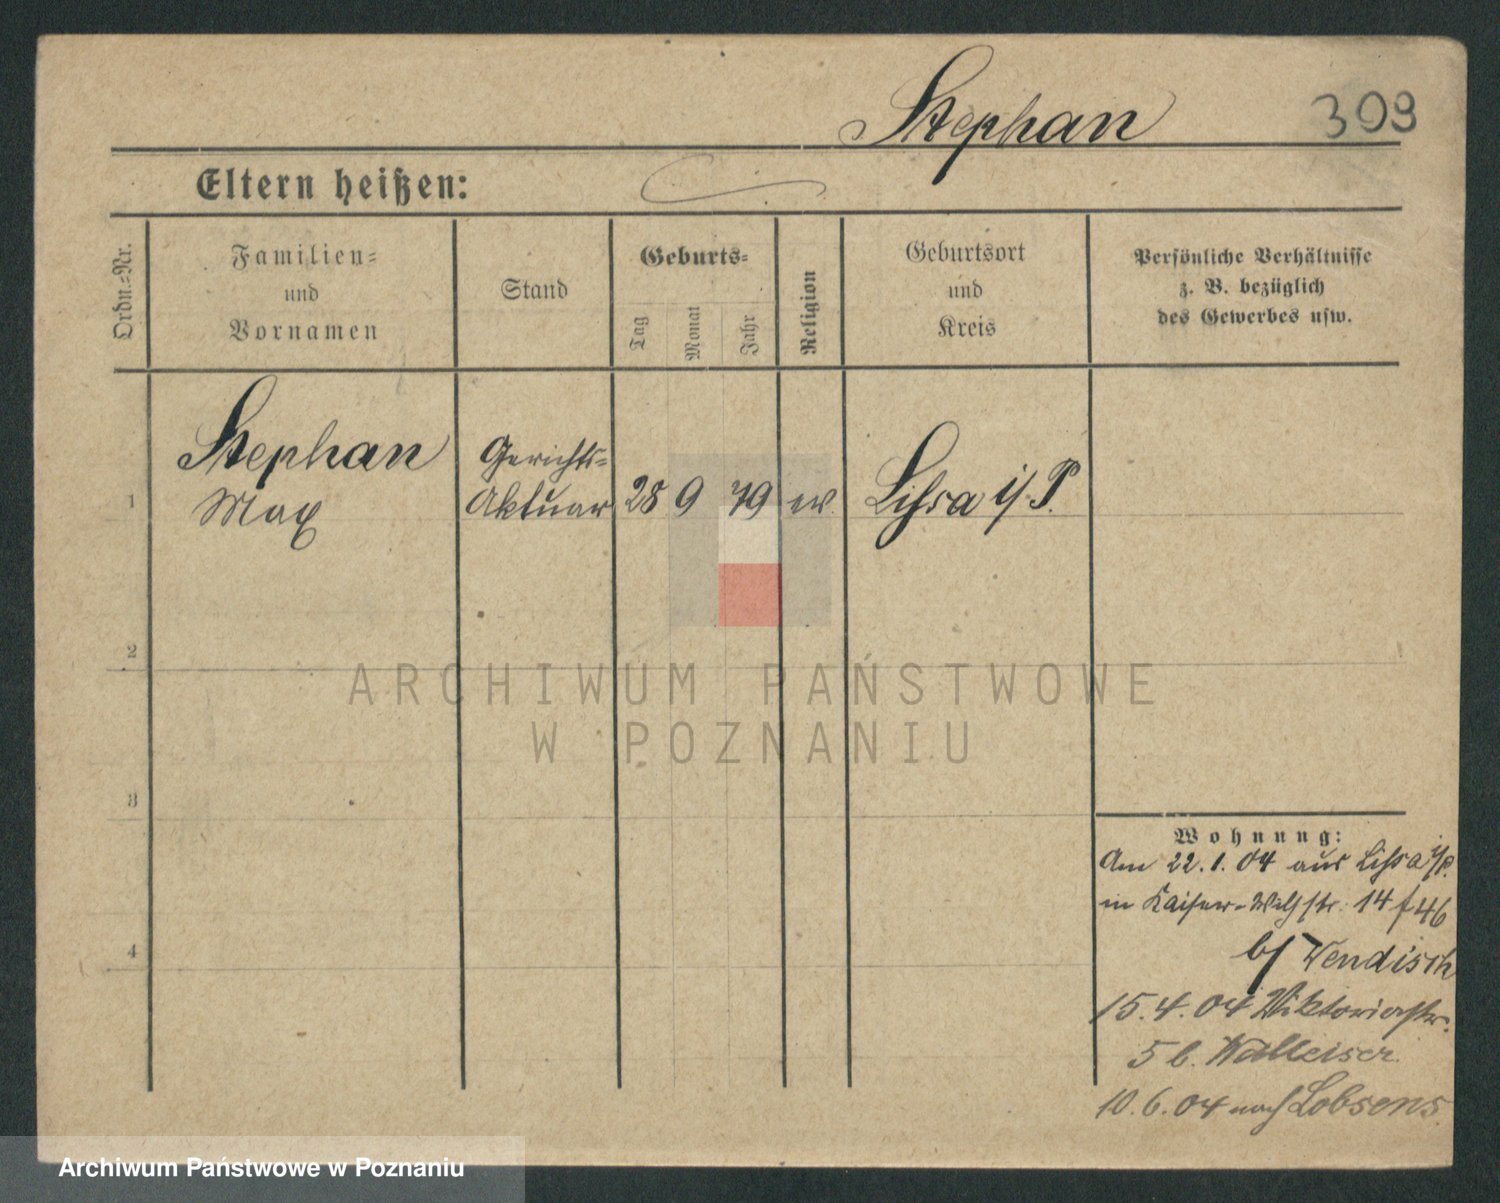 Stephan
309
Eltern heißen:
Ordn.-Nr.
Familien-
und
Vornamen
Stand
Geburts-
Tag
Monat
Jahr
Religion
Geburtsort
und
Kreis
Persönliche Verhältnisse
z. B. bezüglich
des Gewerbes usw.
1
Stephan
Max
Gerichts-
Aktuar
28 9 79 ev.
Lissa i/P.
2
3
4
ARCHIWUM PAŃSTWOWE
W POZNANIU
Wohnung:
Am 22.1.04 aus Lissa i/P.
in Kaiser-Wilhstr. 14 f 46
b/ Wendisch
15.4.04 Viktoriastr.
5 b. Walleiser
10.6.04 nach Lobsens
Archiwum Państwowe w Poznaniu